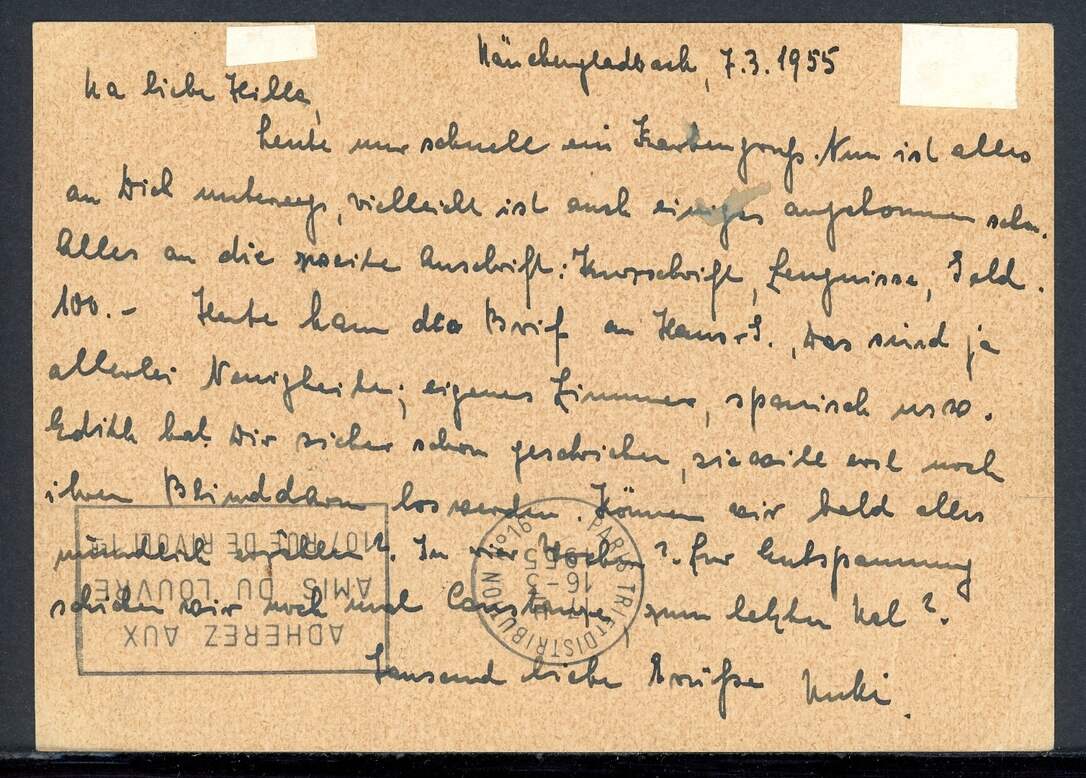 Mönchengladbach, 7.3.1955
liebe Hilla,
heute nur schnell ein Kartengruß. Nun ist alles
an Dich unterwegs, vielleicht ist auch einiges angekommen schon.
Alles an die zweite Anschrift: Kurzschrift, Zeugnisse, Geld.
100.- Heute kam der Brief an Hans. Das sind ja
allerlei Neuigkeiten; eigenes Zimmer, spanisch usw.
Edith hat Dir sicher schon geschrieben, sie will erst noch
ihren Blinddarm loswerden. Können wir bald alles
mündlich erzählen? In vier Wochen? Zur Entspannung
schicken wir noch mal zum letzten Mal?
Tausend liebe Grüße
ADHEREZ AUX
AMIS DU LOUVRE
107 RUE DE RIVOLI 1e
PARIS TRI ET DISTRIBUTION N°16
16-3
1955